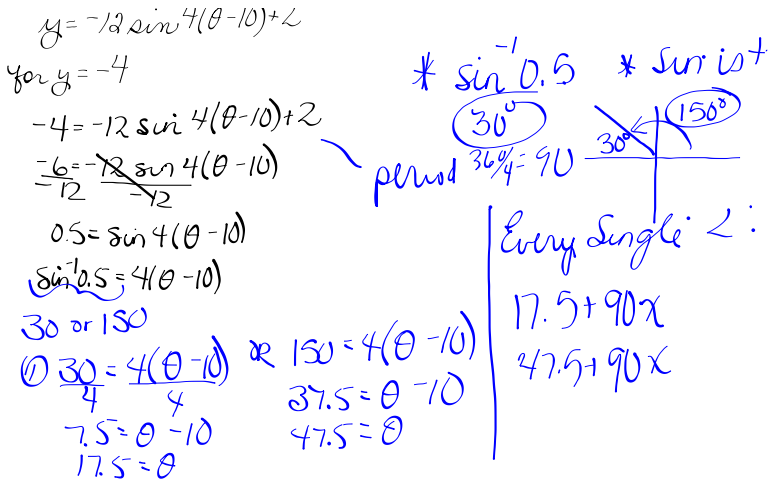 y = -12 sin 4(θ-10)+2
for y = -4
-4 = -12 sin 4(θ-10)+2
-6/-12 = -12 sin 4(θ-10)/-12
0.5 = sin 4(θ-10)
sin⁻¹0.5 = 4(θ-10)
30 or 150
① 30/4 = 4(θ-10)/4
7.5 = θ -10
17.5 = θ
OR 150 = 4(θ-10)
37.5 = θ -10
47.5 = θ
* sin⁻¹0.5
30°
period 360/4 = 90
* sin is +
150°
30°
Every Single ∠:
17.5+90x
47.5+90x